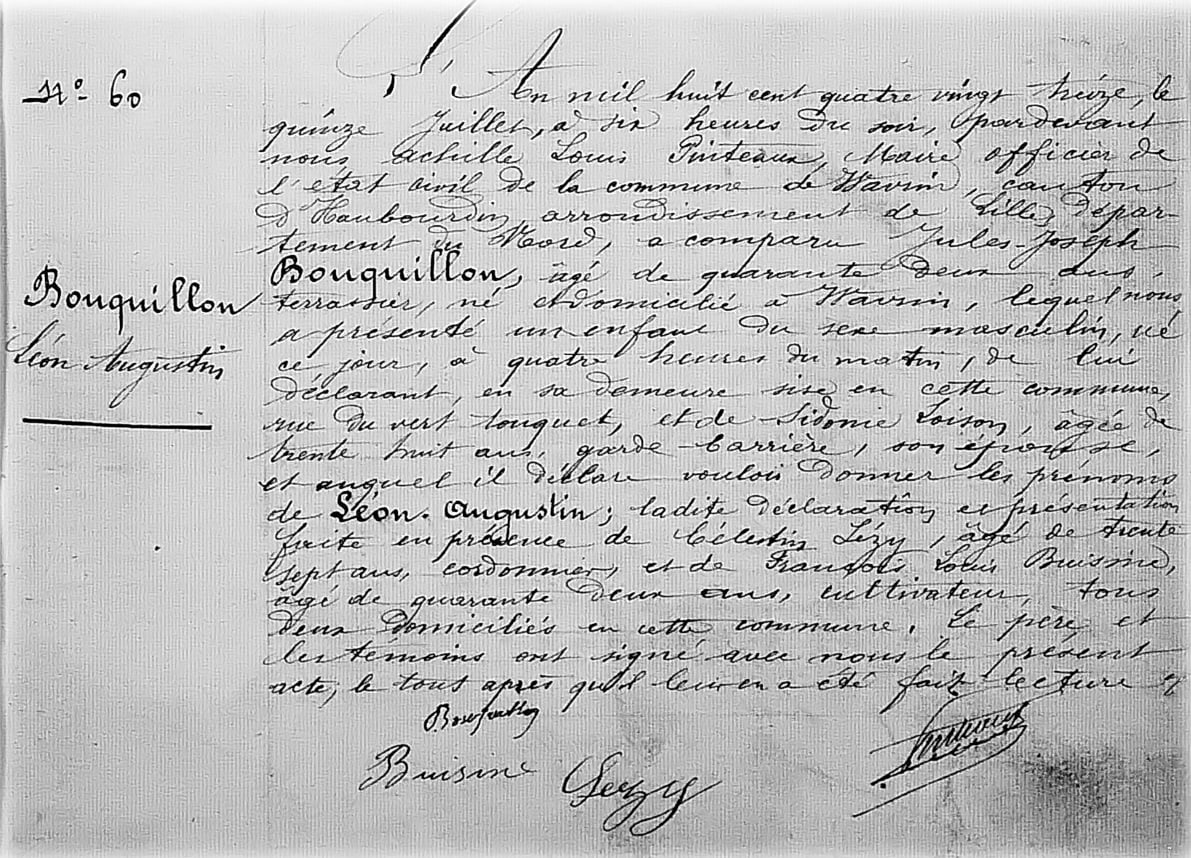 N° 60
Bouquillon
Léon Augustin
L'An mil huit cent quatre vingt treize, le
quinze Juillet, à six heures du soir, pardevant
nous achille Louis Pinteaux, Maire officier de
l'état civil de la commune de Wavrin, canton
d'Haubourdin, arrondissement de Lille, dépar-
tement du Nord, a comparu Jules-Joseph
Bouquillon, âgé de quarante deux ans,
terrassier, né et domicilié à Wavrin, lequel nous
a présenté un enfant du sexe masculin, né
ce jour, à quatre heures du matin, de lui
déclarant, en sa demeure sise en cette commune,
rue du vert touquet, et de Sidonie Loison, âgée de
trente huit ans, garde-barrière, son épouse,
et auquel il déclare vouloir donner les prénoms
de Léon. Augustin; ladite déclaration et présentation
faite en présence de Célestin Lézy, âgé de trente
sept ans, cordonnier, et de François Louis Buisine,
âgé de quarante deux ans, cultivateur, tous
deux domiciliés en cette commune. Le père et
les témoins ont signé avec nous le présent
acte, le tout après qu'il leur en a été fait lecture
Bouquillon
Buisine Lezy